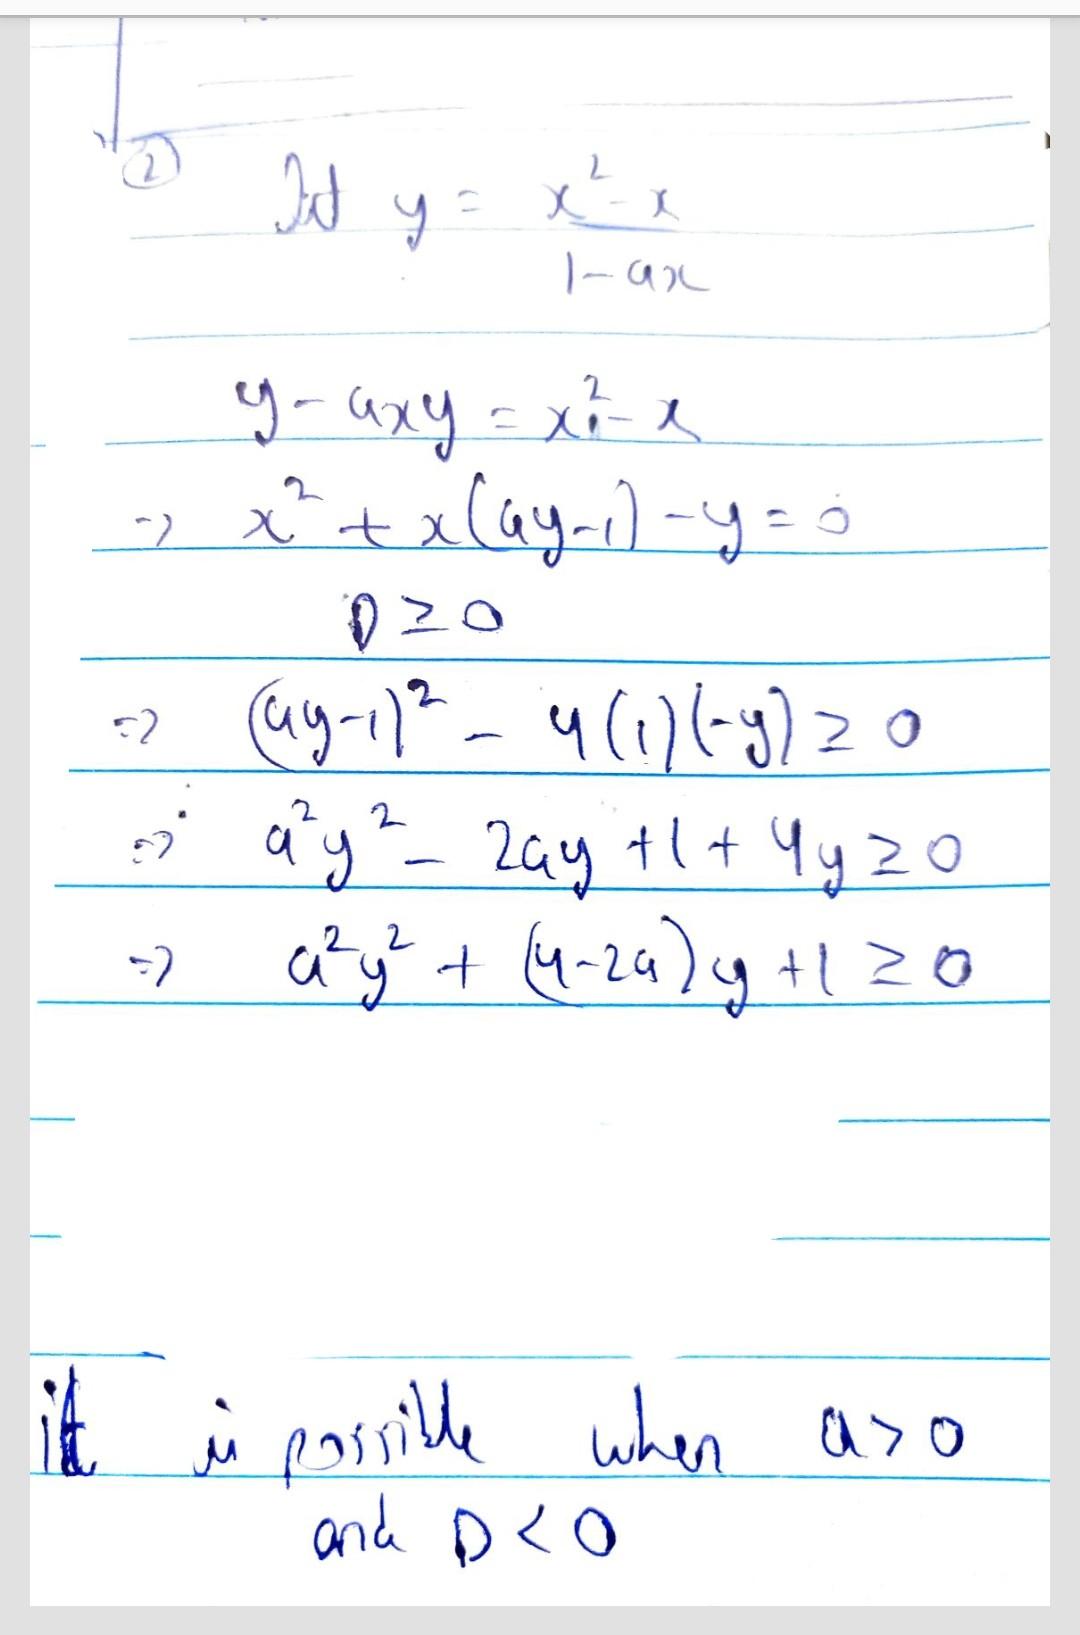 ② Let y = x² - x
1 - ax
y - axy = x² - x
=> x² + x(ay-1) - y = 0
D ≥ 0
=> (ay-1)² - 4(1)(-y) ≥ 0
=> a²y² - 2ay + 1 + 4y ≥ 0
=> a²y² + (4-2a)y + 1 ≥ 0
it is possible when a > 0
and D < 0